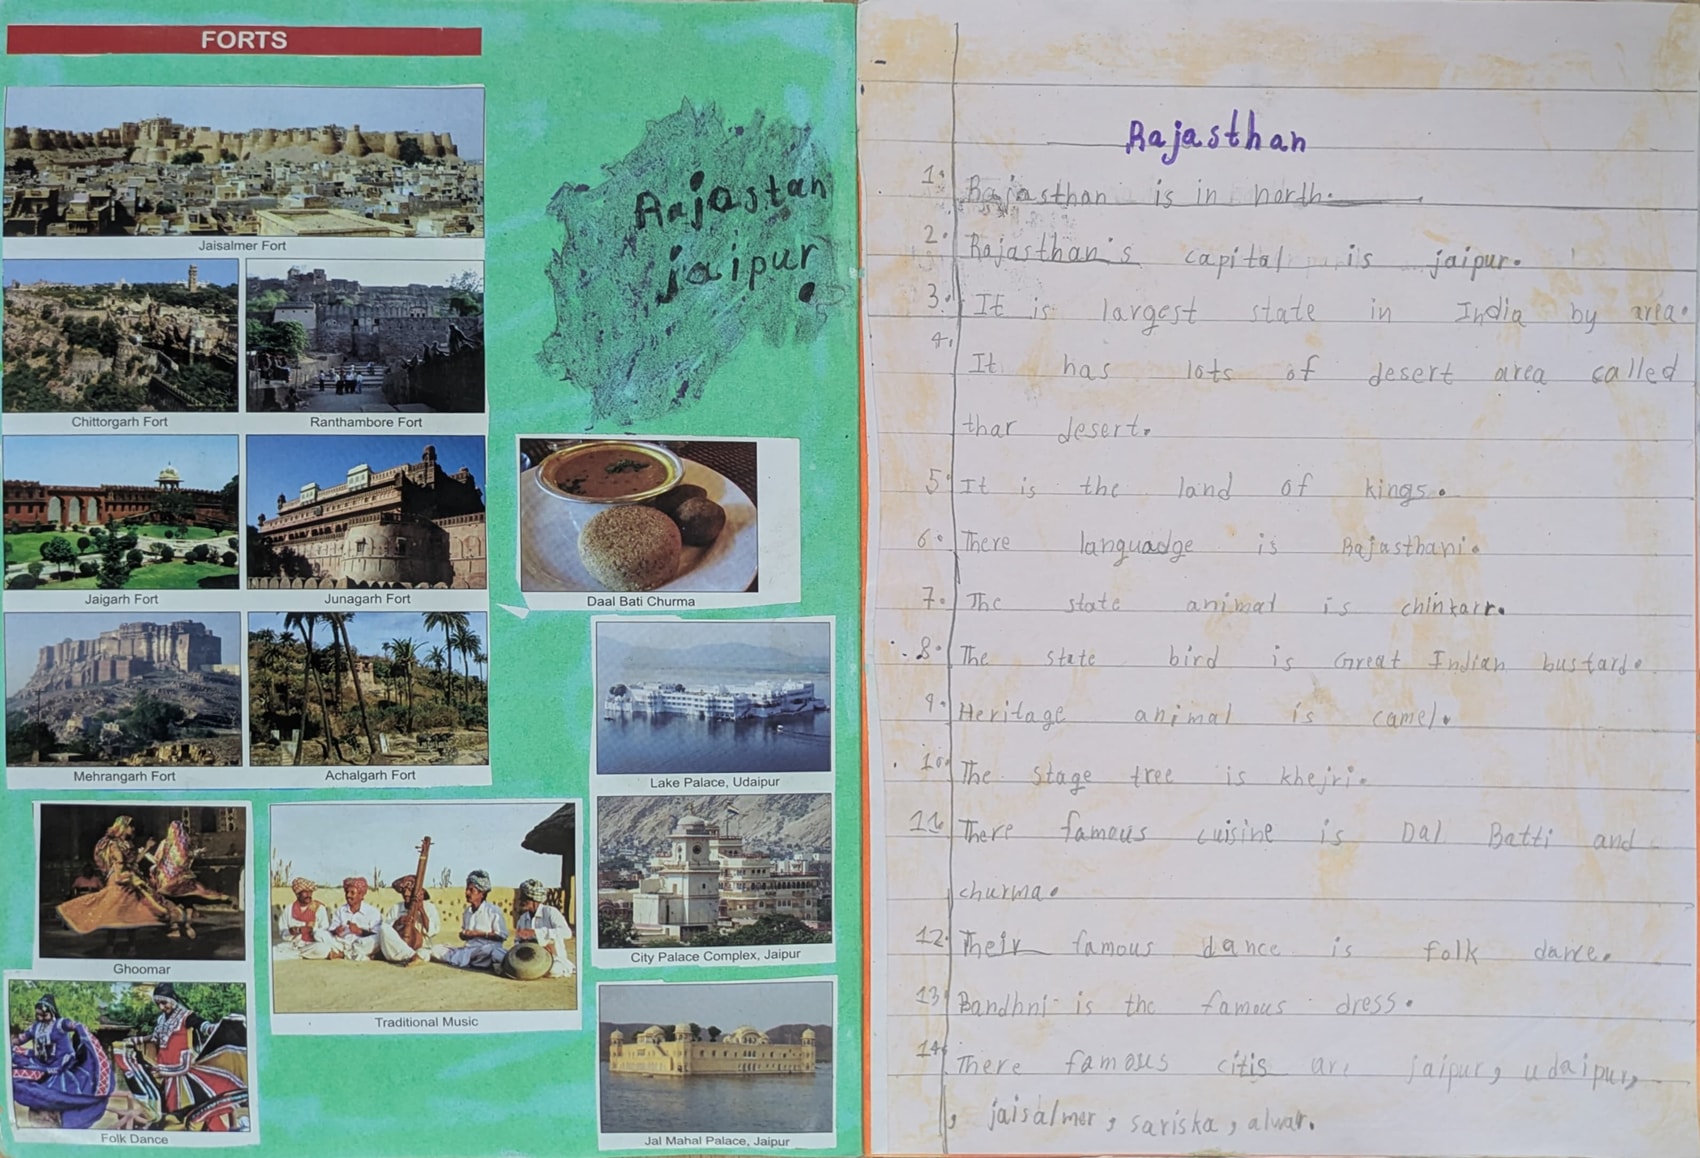 FORTS
Jaisalmer Fort
Chittorgarh Fort
Ranthambore Fort
Jaigarh Fort
Junagarh Fort
Mehrangarh Fort
Achalgarh Fort
Ghoomar
Folk Dance
Traditional Music
Rajastan
jaipur
Daal Bati Churma
Lake Palace, Udaipur
City Palace Complex, Jaipur
Jal Mahal Palace, Jaipur
Rajasthan
1. Rajasthan is in north.
2. Rajasthan's capital is jaipur.
3. It is largest state in India by area.
4. It has lots of desert area called
thar desert.
5. It is the land of kings.
6. There languadge is Rajasthani.
7. The state animal is chinkarr.
8. The state bird is Great Indian bustard.
9. Heritage animal is camel.
10. The stage tree is khejri.
11. There famous cuisine is Dal Batti and
churma.
12. Their famous dance is folk dance.
13. Bandhni is the famous dress.
14. There famous citis are jaipur, udaipur,
, jaisalmer, sariska, alwar.